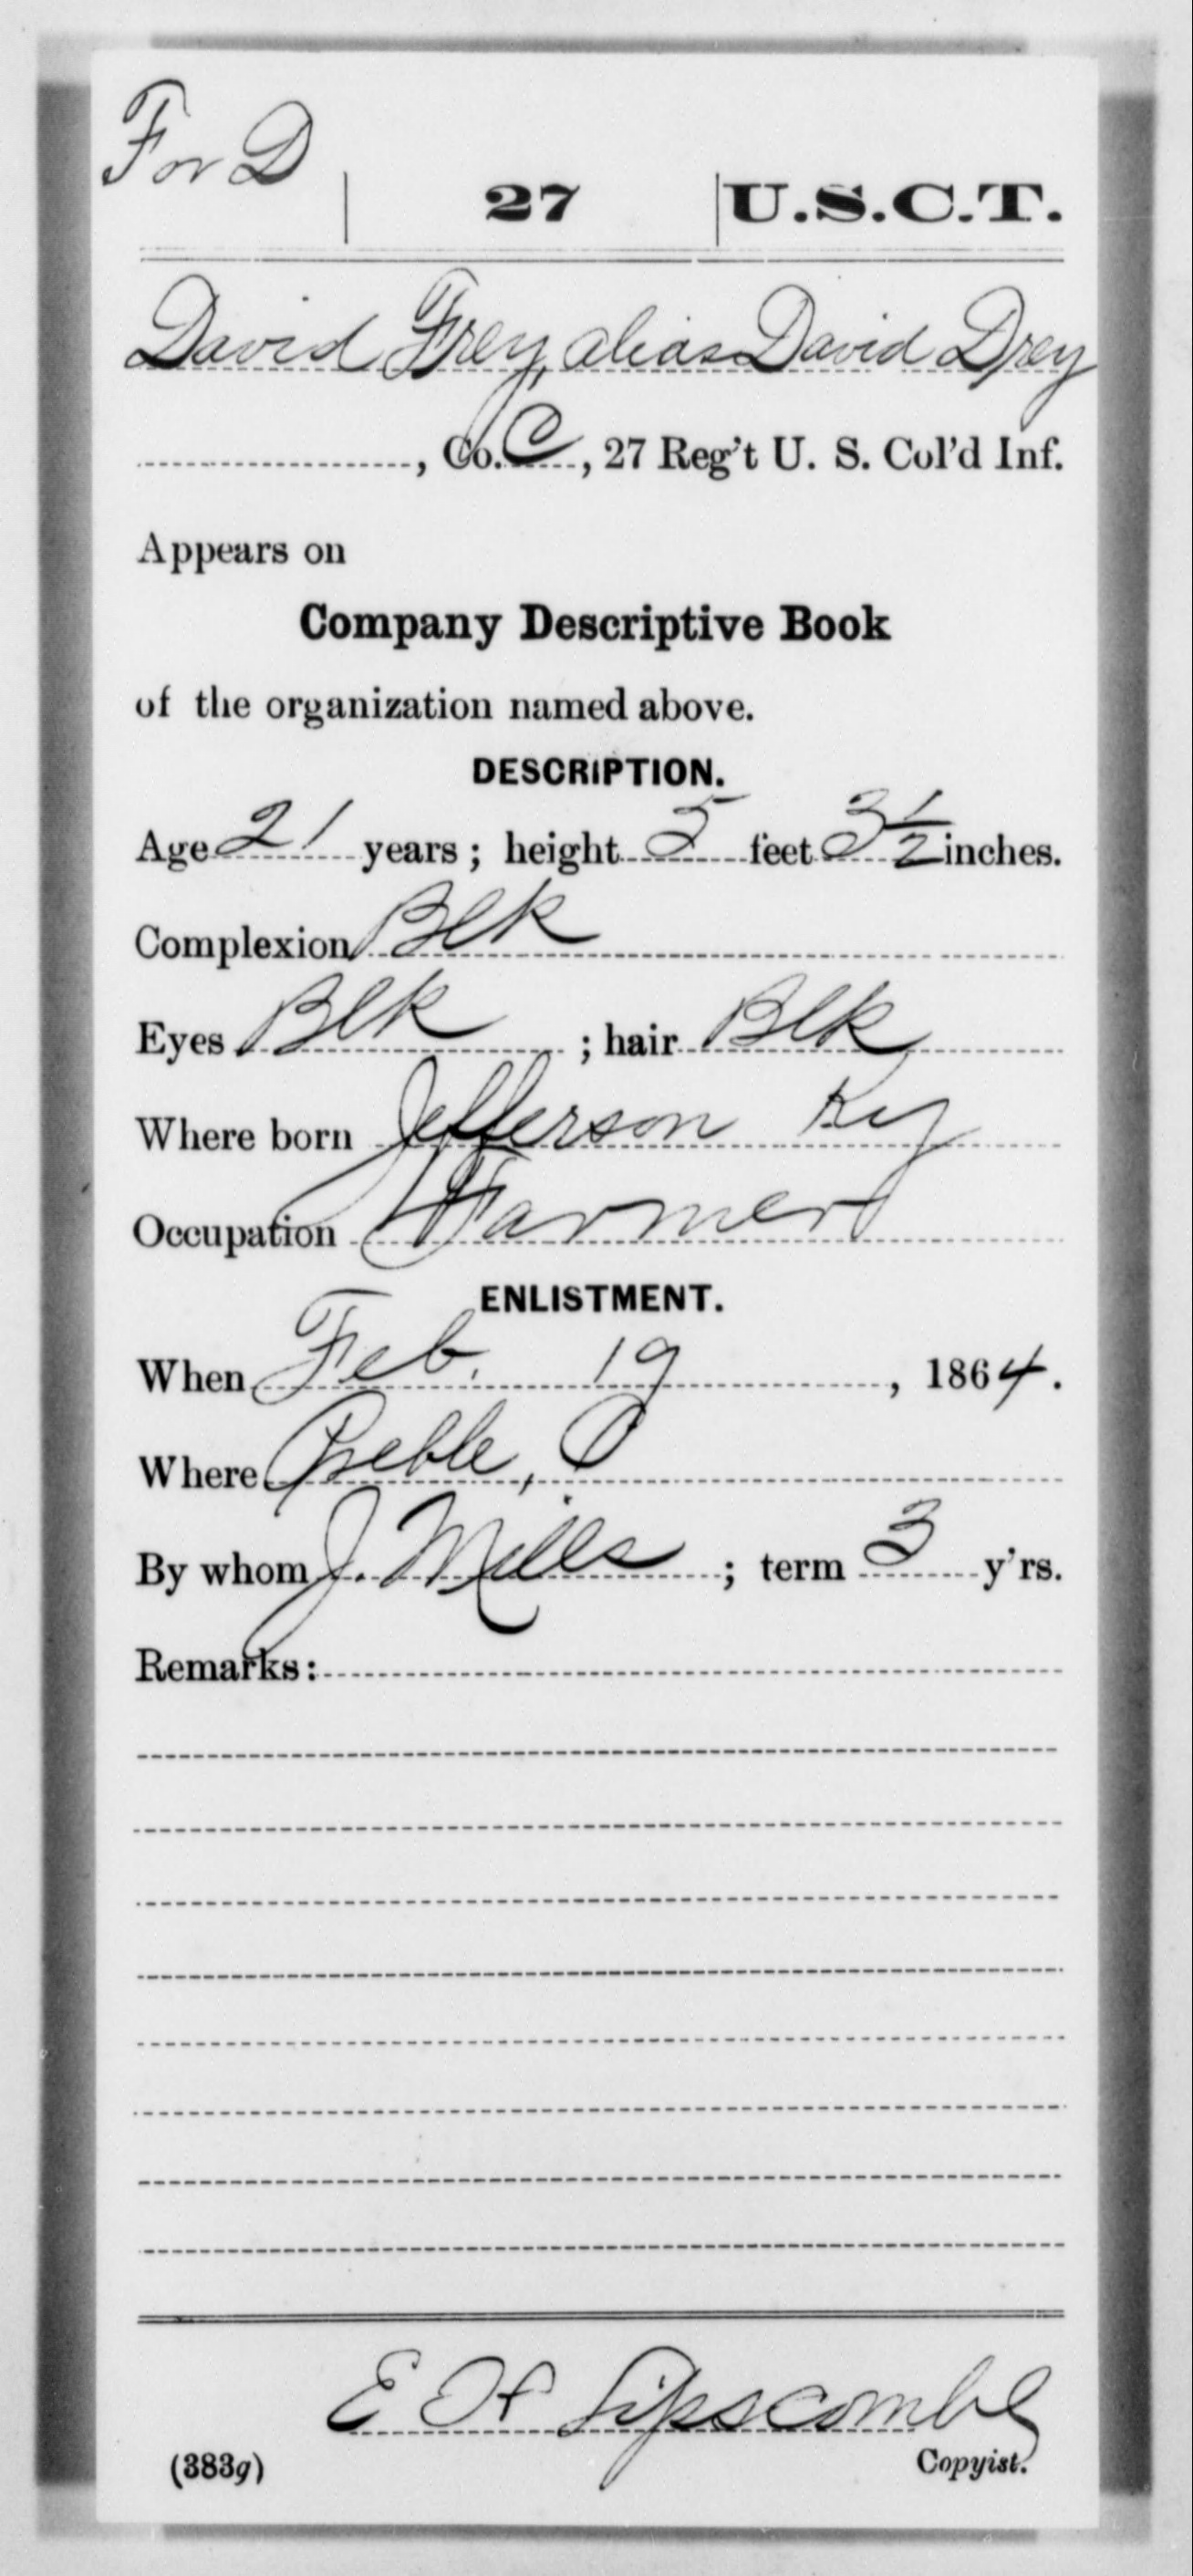 F or D | 27 | U.S.C.T.
David Frey, alias David Drey
, Co. C, 27 Reg't U. S. Col'd Inf.
Appears on
Company Descriptive Book
of the organization named above.
DESCRIPTION.
Age 21 years; height 5 feet 3 1/2 inches.
Complexion Blk
Eyes Blk ; hair Blk
Where born Jefferson Ky
Occupation Farmer
ENLISTMENT.
When Feb. 19, 1864.
Where Preble, O
By whom J. Mills ; term 3 y'rs.
Remarks:
E H Lipscombe
(383g) Copyist.